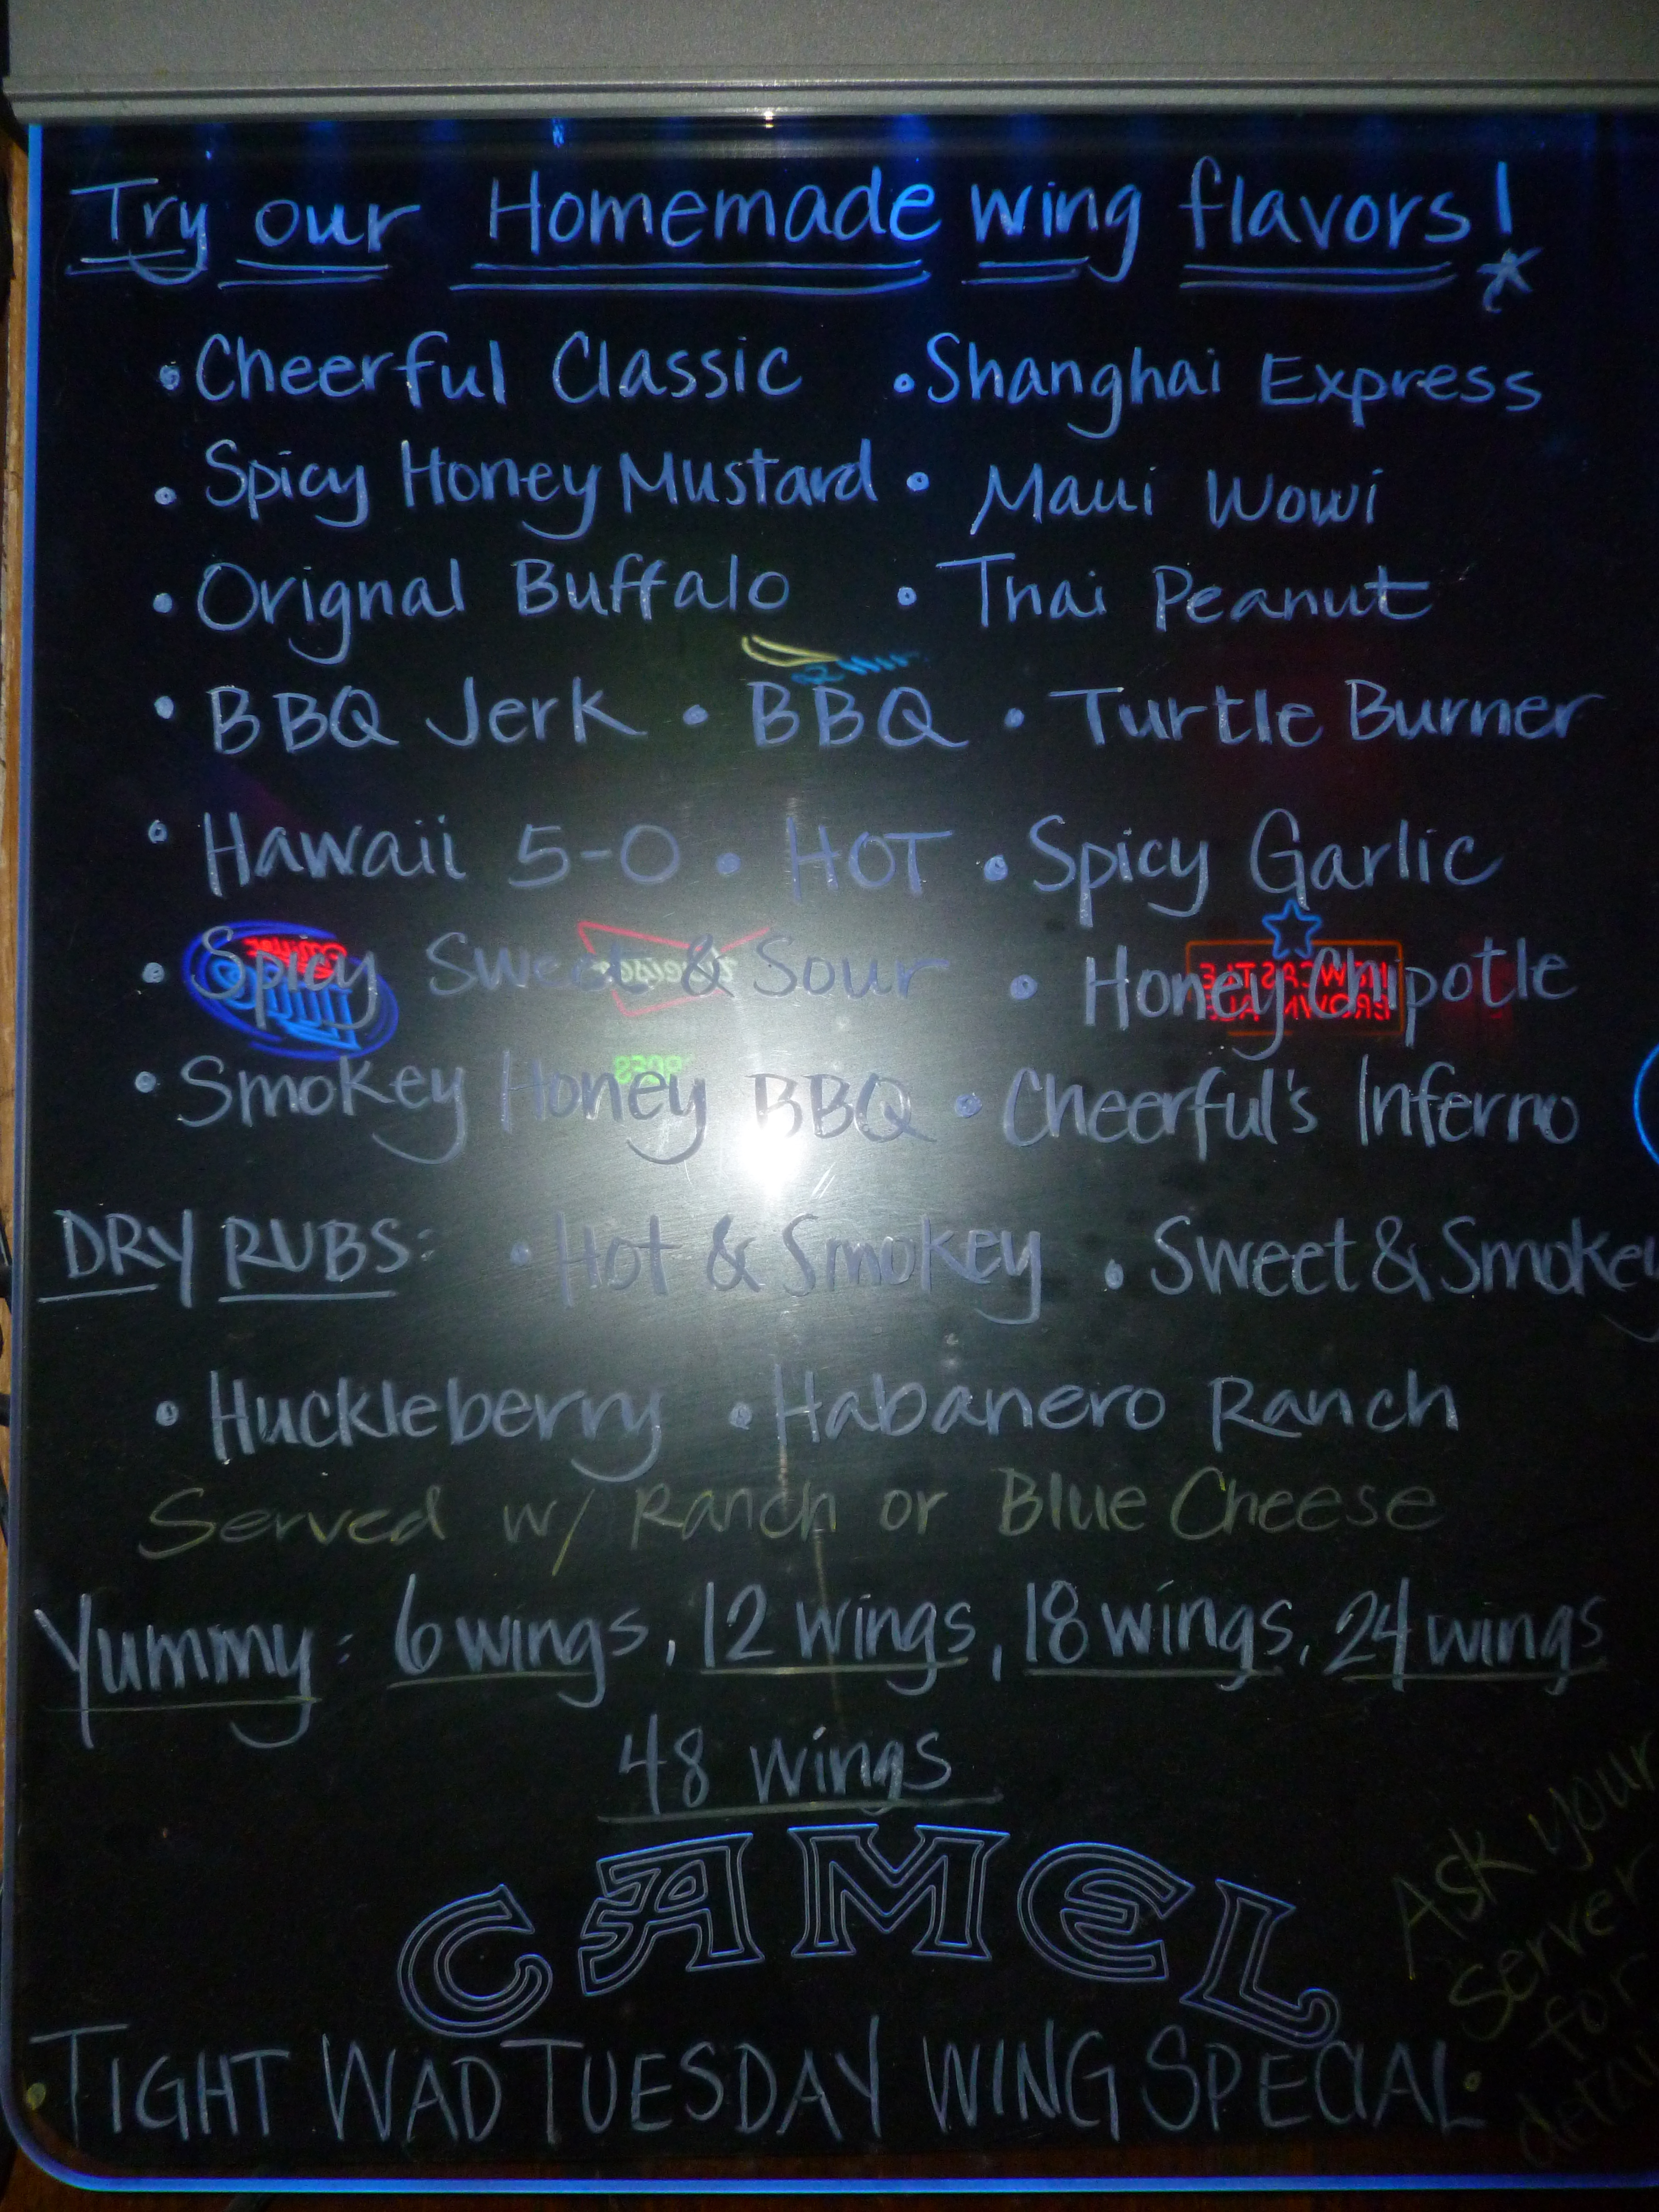 Try our Homemade wing flavors!
• Cheerful Classic • Shanghai Express
• Spicy Honey Mustard • Maui Wowi
• Orignal Buffalo • Thai Peanut
• BBQ Jerk • BBQ • Turtle Burner
• Hawaii 5-0 • HOT • Spicy Garlic
• Spicy Sweet & Sour • Honey Chipotle
• Smokey Honey BBQ • Cheerful's Inferno
DRY RUBS: • Hot & Smokey • Sweet & Smokey
• Huckleberry • Habanero Ranch
Served w/ Ranch or Blue Cheese
Yummy: 6 wings, 12 wings, 18 wings, 24 wings
48 wings
CAMEL
Ask your
server
for
• TIGHT WAD TUESDAY WING SPECIAL •